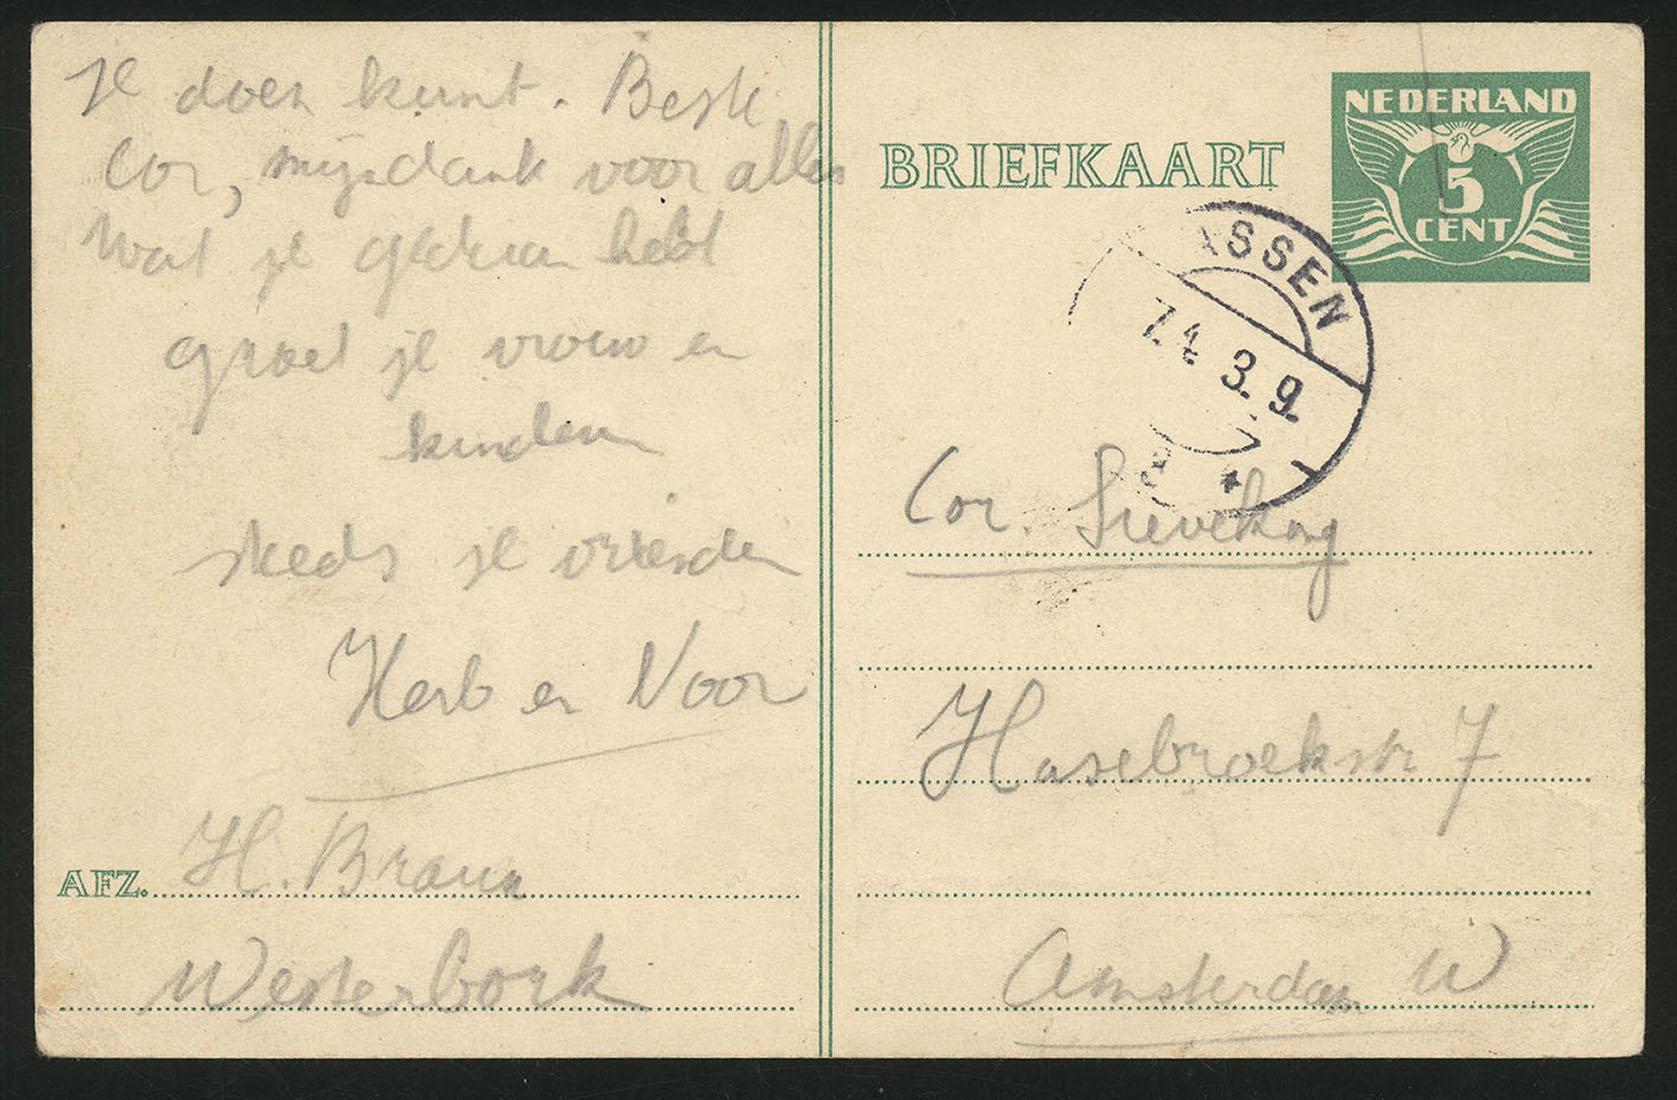 je doen kunt. Beste
Cor, mijn dank voor alles
wat je gedaan hebt
groet je vrouw en
kinderen
steeds je vrienden
Herb en Noor
AFZ. H. Braun
Westerbork
BRIEFKAART
NEDERLAND
5
CENT
ASSEN
Cor. Sieveking
Hasebroekstr 7
Amsterdam W